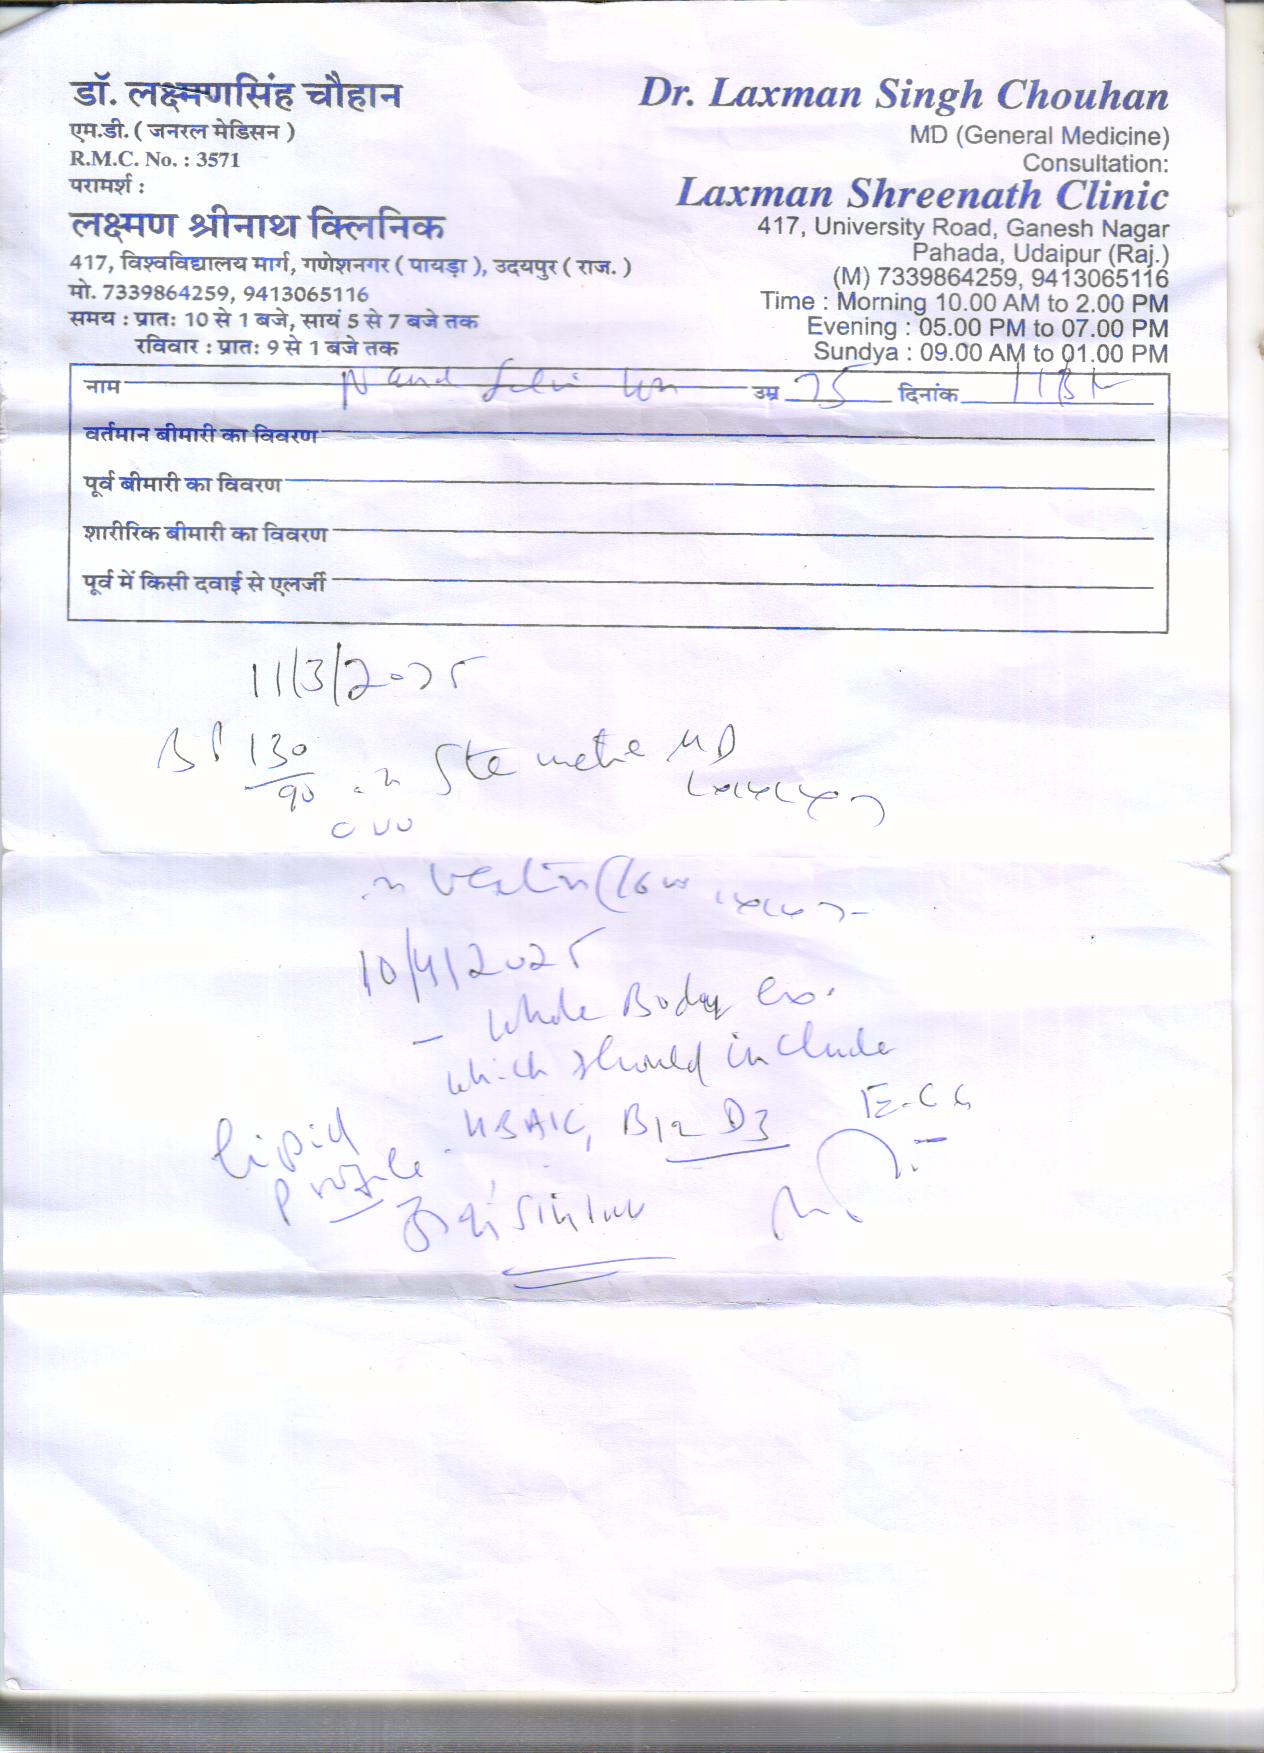 डॉ. लक्ष्मणसिंह चौहान
एम.डी. ( जनरल मेडिसन )
R.M.C. No. : 3571
परामर्श :
लक्ष्मण श्रीनाथ क्लिनिक
417, विश्वविद्यालय मार्ग, गणेशनगर ( पायड़ा ), उदयपुर ( राज. )
मो. 7339864259, 9413065116
समय : प्रातः 10 से 1 बजे, सायं 5 से 7 बजे तक
रविवार : प्रातः 9 से 1 बजे तक
Dr. Laxman Singh Chouhan
MD (General Medicine)
Consultation:
Laxman Shreenath Clinic
417, University Road, Ganesh Nagar
Pahada, Udaipur (Raj.)
(M) 7339864259, 9413065116
Time : Morning 10.00 AM to 2.00 PM
Evening : 05.00 PM to 07.00 PM
Sundya : 09.00 AM to 01.00 PM
नाम Nand उम्र 75 दिनांक
वर्तमान बीमारी का विवरण
पूर्व बीमारी का विवरण
शारीरिक बीमारी का विवरण
पूर्व में किसी दवाई से एलर्जी
11/3/2025
BP 130/90 Stemetil MD
Vertin
10/4/2025
- Whole Body
which should include
HBA1C, B12 D3 E.C.G
Lipid
Profile